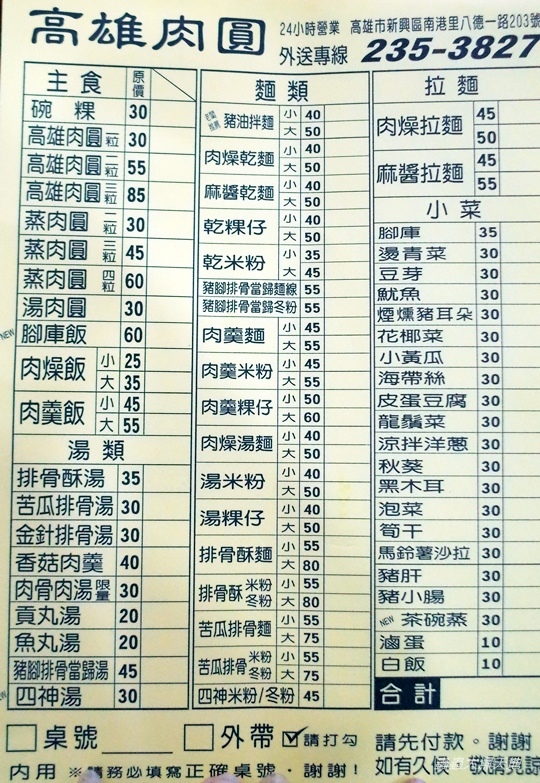 高雄肉圓
24小時營業 高雄市新興區南港里八德一路203號
外送專線 235-3827
主食 原價
碗粿 30
高雄肉圓 一粒 30
高雄肉圓 二粒 55
高雄肉圓 三粒 85
蒸肉圓 二粒 30
蒸肉圓 三粒 45
蒸肉圓 四粒 60
湯肉圓 30
NEW 腳庫飯 60
肉燥飯 小 25
大 35
肉羹飯 小 45
大 55
湯類
排骨酥湯 35
苦瓜排骨湯 30
金針排骨湯 30
香菇肉羹 40
肉骨肉湯 限量 30
貢丸湯 20
魚丸湯 20
豬腳排骨當歸湯 45
四神湯 30
麵類
豬油拌麵 小 40
大 50
肉燥乾麵 小 40
大 50
麻醬乾麵 小 40
大 50
乾粿仔 小 40
大 50
乾米粉 小 35
大 45
豬腳排骨當歸麵線 55
豬腳排骨當歸冬粉 55
肉羹麵 小 45
大 55
肉羹米粉 小 45
大 55
肉羹粿仔 小 50
大 60
肉燥湯麵 小 40
大 50
湯米粉 小 40
大 50
湯粿仔 小 40
大 50
排骨酥麵 小 55
大 80
排骨酥 米粉 冬粉 小 55
大 80
苦瓜排骨麵 小 55
大 75
苦瓜排骨 米粉 冬粉 小 55
大 75
四神米粉/冬粉 45
拉麵
肉燥拉麵 45
50
麻醬拉麵 45
55
小菜
腳庫 35
燙青菜 30
豆芽 30
魷魚 30
煙燻豬耳朵 30
花椰菜 30
小黃瓜 30
海帶絲 30
皮蛋豆腐 30
龍鬚菜 30
涼拌洋蔥 30
秋葵 30
黑木耳 30
泡菜 30
筍干 30
馬鈴薯沙拉 30
豬肝 30
豬小腸 30
NEW 茶碗蒸 30
滷蛋 10
白飯 10
合計
桌號 外帶 請打勾
內用 ※請務必填寫正確桌號，謝謝！
請先付款。謝謝
如有久候，敬請見諒